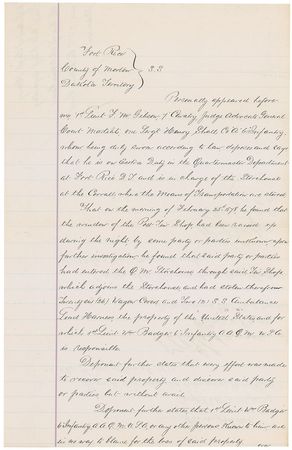 Fort Rice
County of Morton } S.S.
Dakota Territory
Personally appeared before
me 1st Lieut F. W. 7 Cavalry Judge Advocate General
Court Martial one Sergt Henry Co A 6 Infantry
whom being duly sworn according to law deposes and says
that he is on Extra Duty in the Quartermaster Department
at Fort Rice D.T. and is in charge of the Storehouse
at the Corral where the Means of Transportation are stored
That on the morning of February 25" 1878 he found that
the window of the Post Tin Shop had been raised up
during the night by some party or parties unknown upon
further investigation he found that said party or parties
had entered the Q.M. Storehouse through said Tin Shop
which adjoins the Storehouse and had stolen therefrom
Twenty six (26) Wagon Covers and Two (2) S.S. Ambulance
Lead Harness the property of the United States and for
which 1st Lieut Wm Badger 6 Infantry A.A.Q.M. U.S.A.
is responsible.
Deponent further states that every effort was made
to recover said property and discover said party
or parties but without avail.
Deponent further states that 1st Lieut Wm Badger
6 Infantry A.A.Q.M. U.S.A. or any other persons known to him are
in no way to blame for the loss of said property